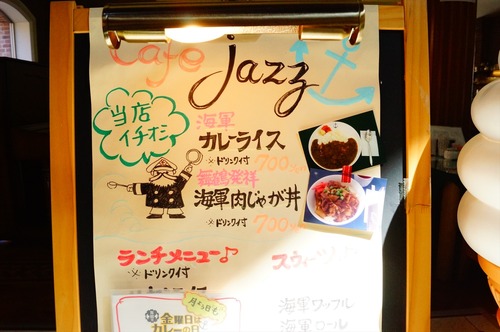 Cafe jazz
当店
イチオシ
海軍
カレーライス
※ドリンク付 700
舞鶴発祥
海軍肉じゃが丼
※ドリンク付 700
ランチメニュー♪
※ドリンク付
海軍ワッフル
海軍ロール
金曜日は
カレーの日